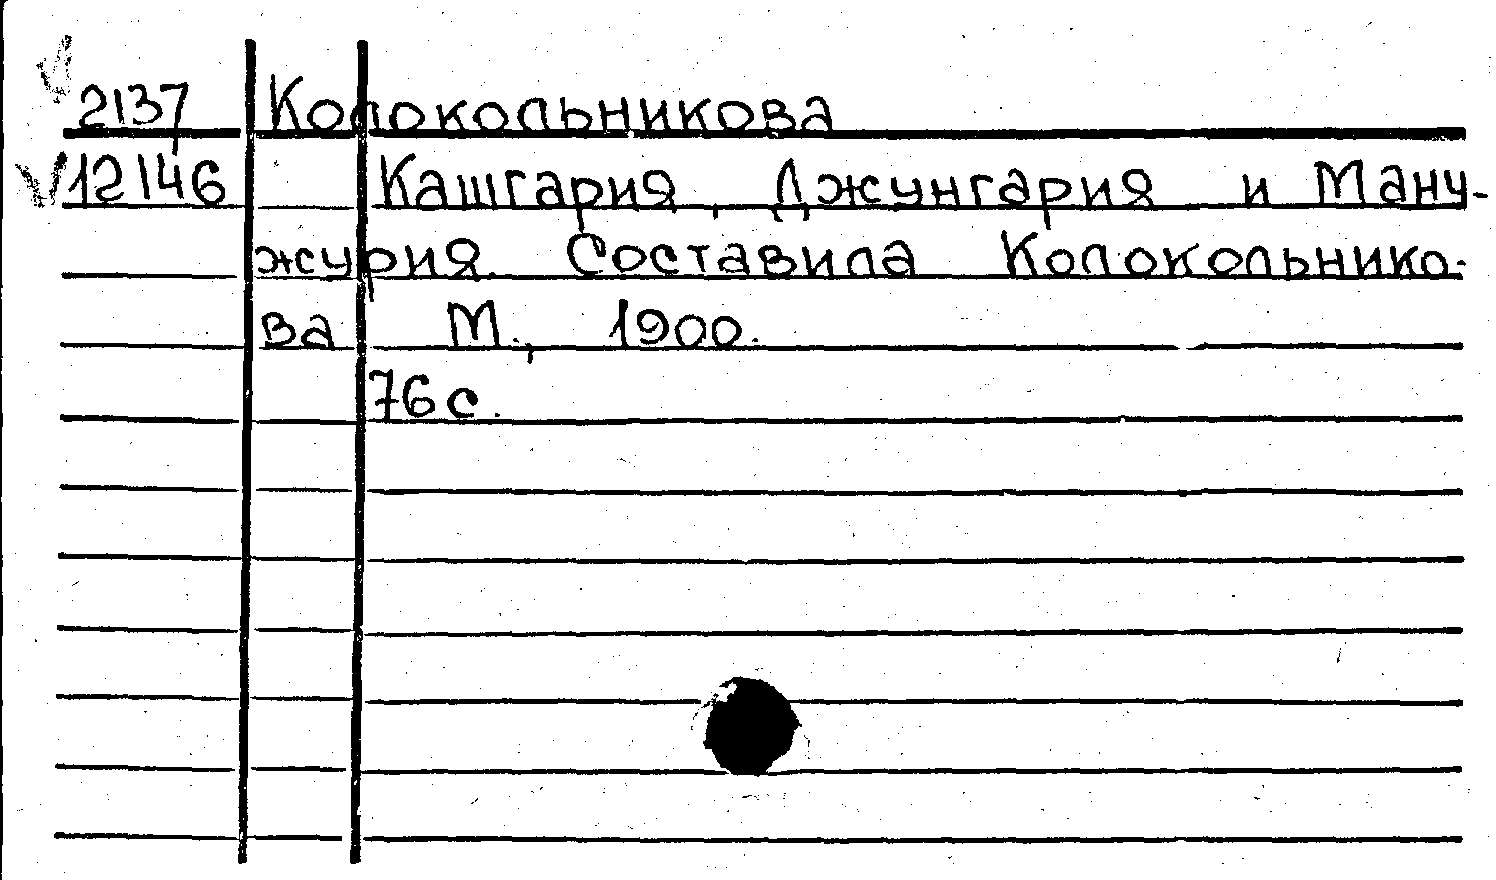 2137 Колокольникова
12146 Кашгария, Джунгария и Ману-
журия. Составила Колокольнико-
ва М., 1900.
76 с.